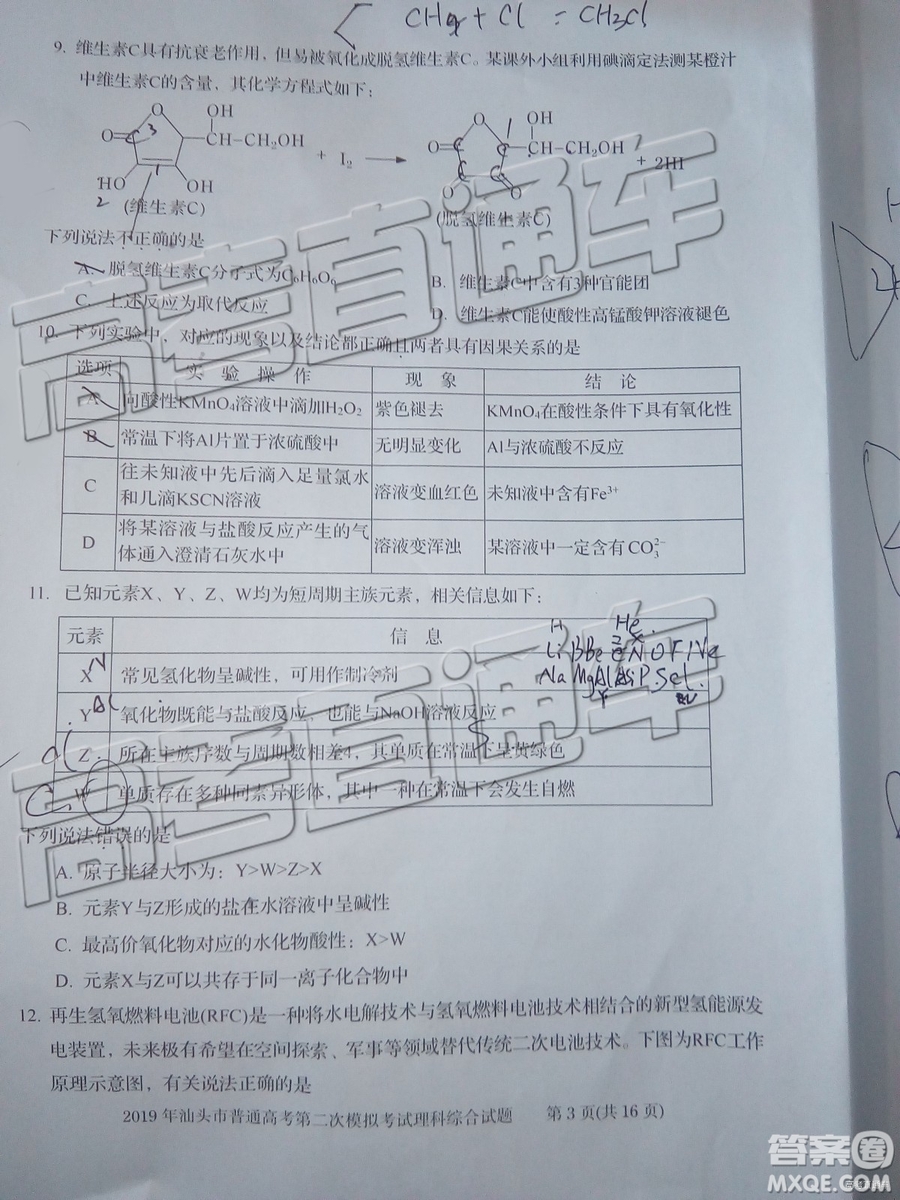 CH₄ + Cl = CH₃Cl
9. 维生素C具有抗衰老作用，但易被氧化成脱氢维生素C。某课外小组利用碘滴定法测某橙汁
中维生素C的含量，其化学方程式如下：
OH
O
O=
CH—CH₂OH
HO
OH
(维生素C)
+ I₂
OH
O
O=
CH—CH₂OH
O
O
(脱氢维生素C)
+ 2HI
下列说法不正确的是
A. 脱氢维生素C分子式为C₆H₆O₆
B. 维生素C中含有3种官能团
C. 上述反应为取代反应
D. 维生素C能使酸性高锰酸钾溶液褪色
10. 下列实验中，对应的现象以及结论都正确且两者具有因果关系的是
选项 实 验 操 作 现 象 结 论
A 向酸性KMnO₄溶液中滴加H₂O₂ 紫色褪去 KMnO₄在酸性条件下具有氧化性
B 常温下将Al片置于浓硫酸中 无明显变化 Al与浓硫酸不反应
C 往未知液中先后滴入足量氯水 溶液变血红色 未知液中含有Fe³⁺
和几滴KSCN溶液
D 将某溶液与盐酸反应产生的气 溶液变浑浊 某溶液中一定含有CO₃²⁻
体通入澄清石灰水中
11. 已知元素X、Y、Z、W均为短周期主族元素，相关信息如下：
元素 信 息
X 常见氢化物呈碱性，可用作制冷剂
Y 氧化物既能与盐酸反应，也能与NaOH溶液反应
Z 所在主族序数与周期数相差4，其单质在常温下呈黄绿色
W 单质存在多种同素异形体，其中一种在常温下会发生自燃
下列说法错误的是
A. 原子半径大小为：Y>W>Z>X
B. 元素Y与Z形成的盐在水溶液中呈碱性
C. 最高价氧化物对应的水化物酸性：X>W
D. 元素X与Z可以共存于同一离子化合物中
12. 再生氢氧燃料电池(RFC)是一种将水电解技术与氢氧燃料电池技术相结合的新型氢能源发
电装置，未来极有希望在空间探索、军事等领域替代传统二次电池技术。下图为RFC工作
原理示意图，有关说法正确的是
2019 年汕头市普通高考第二次模拟考试理科综合试题 第 3 页(共 16 页)
高考直通车
高考直通车
答案圈
MXQE.COM